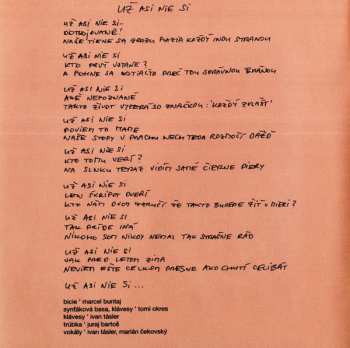 UŽ ASI NIE SI
UŽ ASI NIE SI...
DOTKOVANÉ!
NAŠE TIENE SA ZRAZU PLAZIA KAŽDÝ INOU STRANOU
UŽ ASI NIE SI
KTO PRVÝ VSTANE?
A POHNE SA POTIAĽTO PREČ TOU SPRÁVNOU BRÁNOU
UŽ ASI NIE SI
AKÉ NEPOZNANÉ
TAKTO ŽIVOT VYZERÁ SO ZNAČKOU: 'KAŽDÝ ZVLÁŠŤ'
UŽ ASI NIE SI
POVIEM TO MAME
NAŠE STOPY V PRACHU NECH TEDA ROZPUSTÍ DÁŽĎ
UŽ ASI NIE SI
KTO TOMU VERÍ?
NA SLNKU TERAZ VIDÍM SAMÉ ČIERNE DIERY
UŽ ASI NIE SI
LEN ŠKRIPOT DVERÍ
KTO NÁM DVOM ZARUČÍ ŽE TAKTO BUDEME ŽIŤ V MIERI?
UŽ ASI NIE SI
TAK PRÍDE INÁ
NIKOHO SOM NIKDY NEMAL TAK STRAŠNE RÁD
UŽ ASI NIE SI
JAK PRED LETOM ZIMA
NEVIEM EŠTE CELKOM PRESNE AKO CHUTÍ CELIBÁT
UŽ ASI NIE SI...
bicie ' marcel buntaj
syntťáková basa, klávesy ' tomi okres
klávesy ' ivan tásler
trúbka ' juraj bartoš
vokály ' ivan tásler, marián čekovský